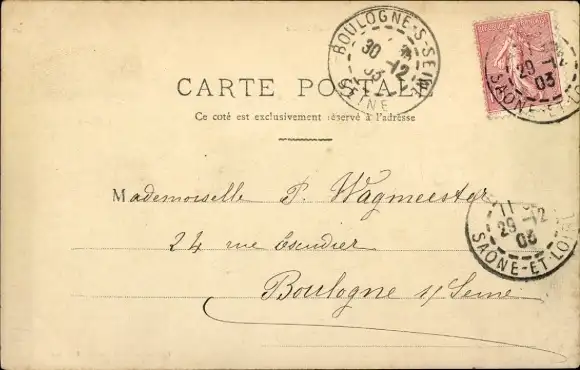 BOULOGNE-S-SEINE
30 -12
03
SEINE
29 -12
03
SAONE-ET-LOIRE
CARTE POSTALE
Ce coté est exclusivement réservé à l'adresse
Mademoiselle P. Wagmeester
24 rue Escudier
Boulogne s/ Seine
11
29 -12
03
SAONE-ET-LOIRE